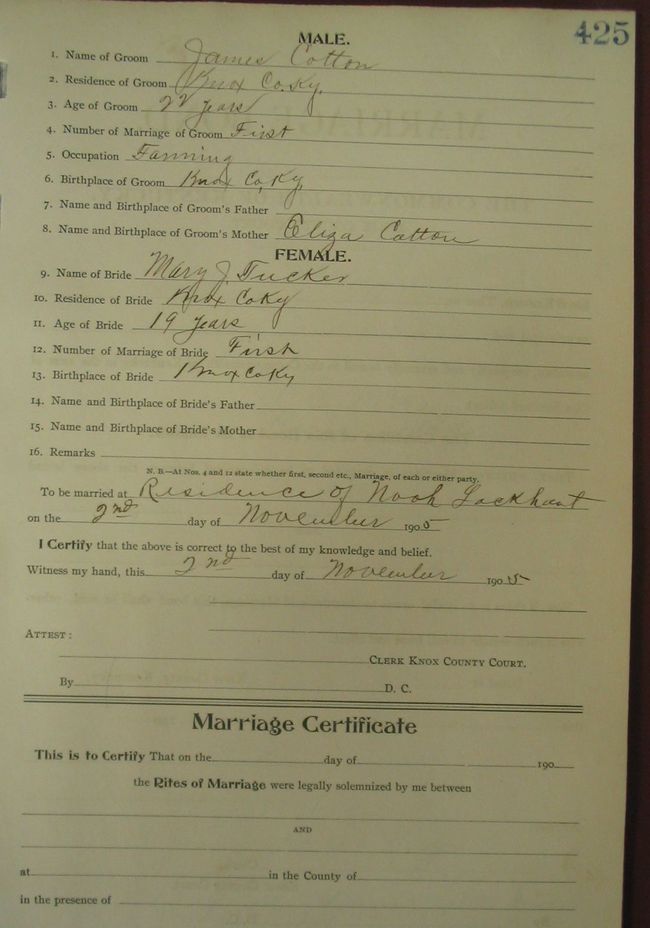 425
MALE.
1. Name of Groom James Cotton
2. Residence of Groom Knox Co. Ky.
3. Age of Groom 22 years
4. Number of Marriage of Groom First
5. Occupation Farming
6. Birthplace of Groom Knox Co, Ky,
7. Name and Birthplace of Groom's Father
8. Name and Birthplace of Groom's Mother Eliza Cotton
FEMALE.
9. Name of Bride Mary J. Tucker
10. Residence of Bride Knox Co Ky
11. Age of Bride 19 years
12. Number of Marriage of Bride First
13. Birthplace of Bride Knox Co Ky
14. Name and Birthplace of Bride's Father
15. Name and Birthplace of Bride's Mother
16. Remarks
N. B.—At Nos. 4 and 12 state whether first, second etc., Marriage, of each or either party.
To be married at Residence of Noah Lockhart
on the 2nd day of November 1905
I Certify that the above is correct to the best of my knowledge and belief.
Witness my hand, this 2nd day of November 1905
ATTEST:
CLERK KNOX COUNTY COURT.
By D. C.
Marriage Certificate
This is to Certify That on the day of 190
the Rites of Marriage were legally solemnized by me between
AND
at in the County of
in the presence of